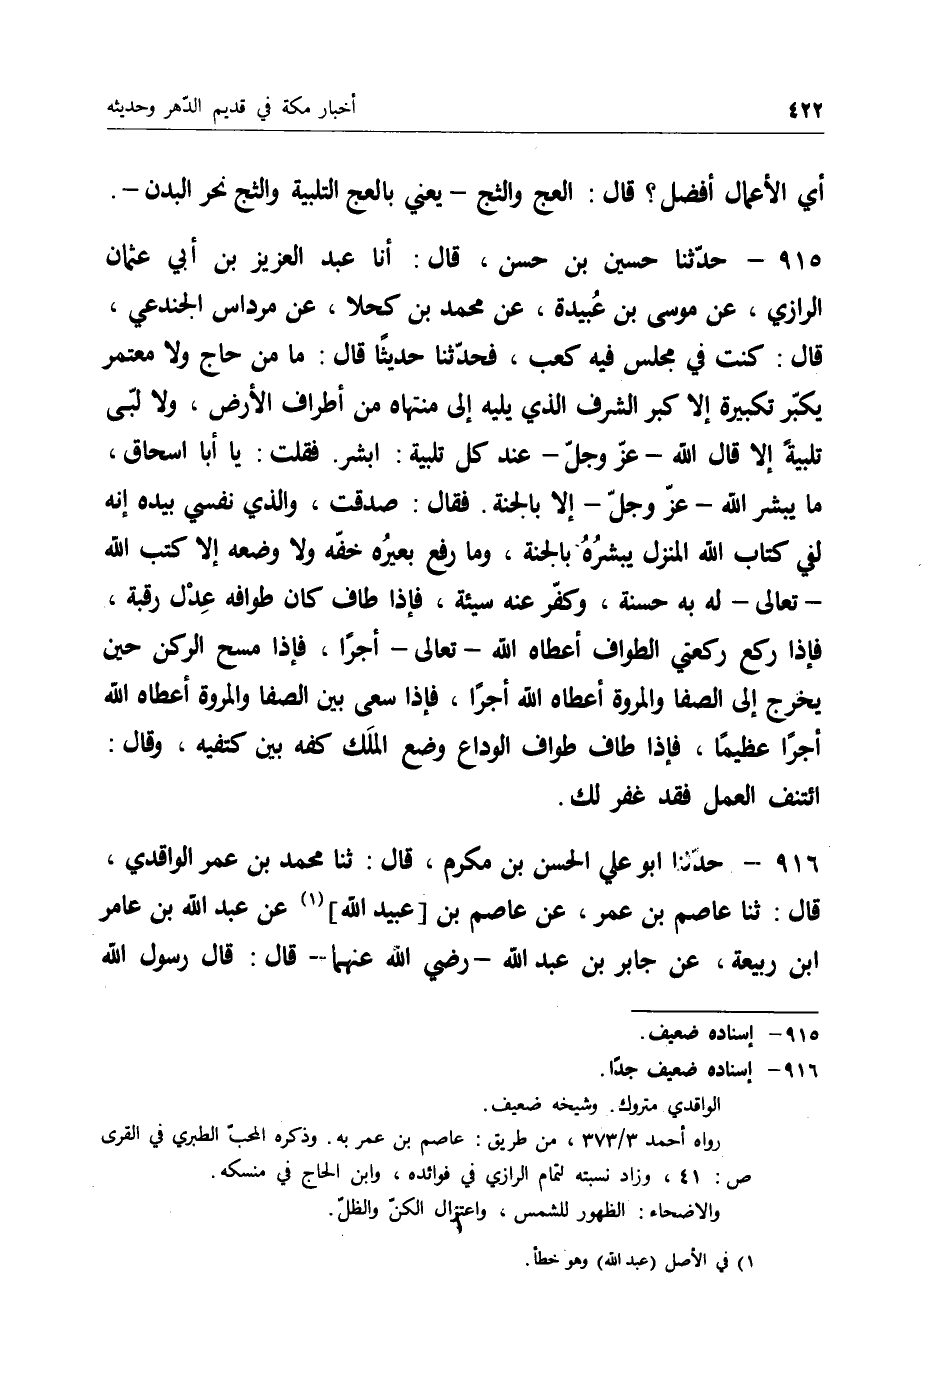 ٤٢٢ أخبار مكة في قديم الدّهر وحديثه
أي الأعمال أفضل؟ قال : العج والثج – يعني بالعج التلبية والثج نحر البدن – .
٩١٥ – حدّثنا حسين بن حسن ، قال : أنا عبد العزيز بن أبي عثمان
الرازي ، عن موسى بن عُبيدة ، عن محمد بن كحلا ، عن مرداس الجندعي ،
قال : كنت في مجلس فيه كعب ، فحدّثنا حديثًا قال : ما من حاج ولا معتمر
يكبّر تكبيرة إلا كبر الشرف الذي يليه إلى منتهاه من أطراف الأرض ، ولا لبّى
تلبيةً إلا قال الله – عزّ وجلّ – عند كل تلبية : ابشر. فقلت : يا أبا اسحاق ،
ما يبشر الله – عزّ وجلّ – إلا بالجنة . فقال : صدقت ، والذي نفسي بيده إنه
لفي كتاب الله المنزل يبشرُهُ بالجنة ، وما رفع بعيرُه خفّه ولا وضعه إلا كتب الله
– تعالى – له به حسنة ، وكفّر عنه سيئة ، فإذا طاف كان طوافه عِدْل رقبة ،
فإذا ركع ركعتي الطواف أعطاه الله – تعالى – أجرًا ، فإذا مسح الركن حين
يخرج إلى الصفا والمروة أعطاه الله أجرًا ، فإذا سعى بين الصفا والمروة أعطاه الله
أجرًا عظيمًا ، فإذا طاف طواف الوداع وضع الملَك كفه بين كتفيه ، وقال :
ائتنف العمل فقد غفر لك .
٩١٦ – حدّثنا ابو علي الحسن بن مكرم ، قال : ثنا محمد بن عمر الواقدي ،
قال : ثنا عاصم بن عمر ، عن عاصم بن [عبيد الله](١) عن عبد الله بن عامر
ابن ربيعة ، عن جابر بن عبد الله – رضي الله عنهما – قال : قال رسول الله
٩١٥ – إسناده ضعيف .
٩١٦ – إسناده ضعيف جدًا .
الواقدي متروك . وشيخه ضعيف .
رواه أحمد ٣٧٣/٣ ، من طريق : عاصم بن عمر به . وذكره المحبّ الطبري في القرى
ص : ٤١ ، وزاد نسبته لتمام الرازي في فوائده ، وابن الحاج في منسكه .
والاضحاء : الظهور للشمس ، واعتزال الكنّ والظلّ .
١) في الأصل (عبد الله) وهو خطأ .